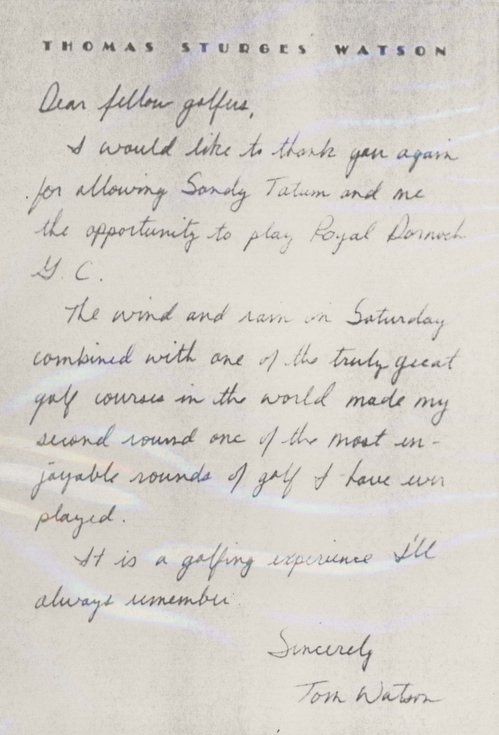 THOMAS STURGES WATSON
Dear fellow golfers,
I would like to thank you again
for allowing Sandy Tatum and me
the opportunity to play Royal Dornoch
G. C.
The wind and rain on Saturday
combined with one of the truly great
golf courses in the world made my
second round one of the most en-
joyable rounds of golf I have ever
played.
It is a golfing experience I'll
always remember.
Sincerely
Tom Watson